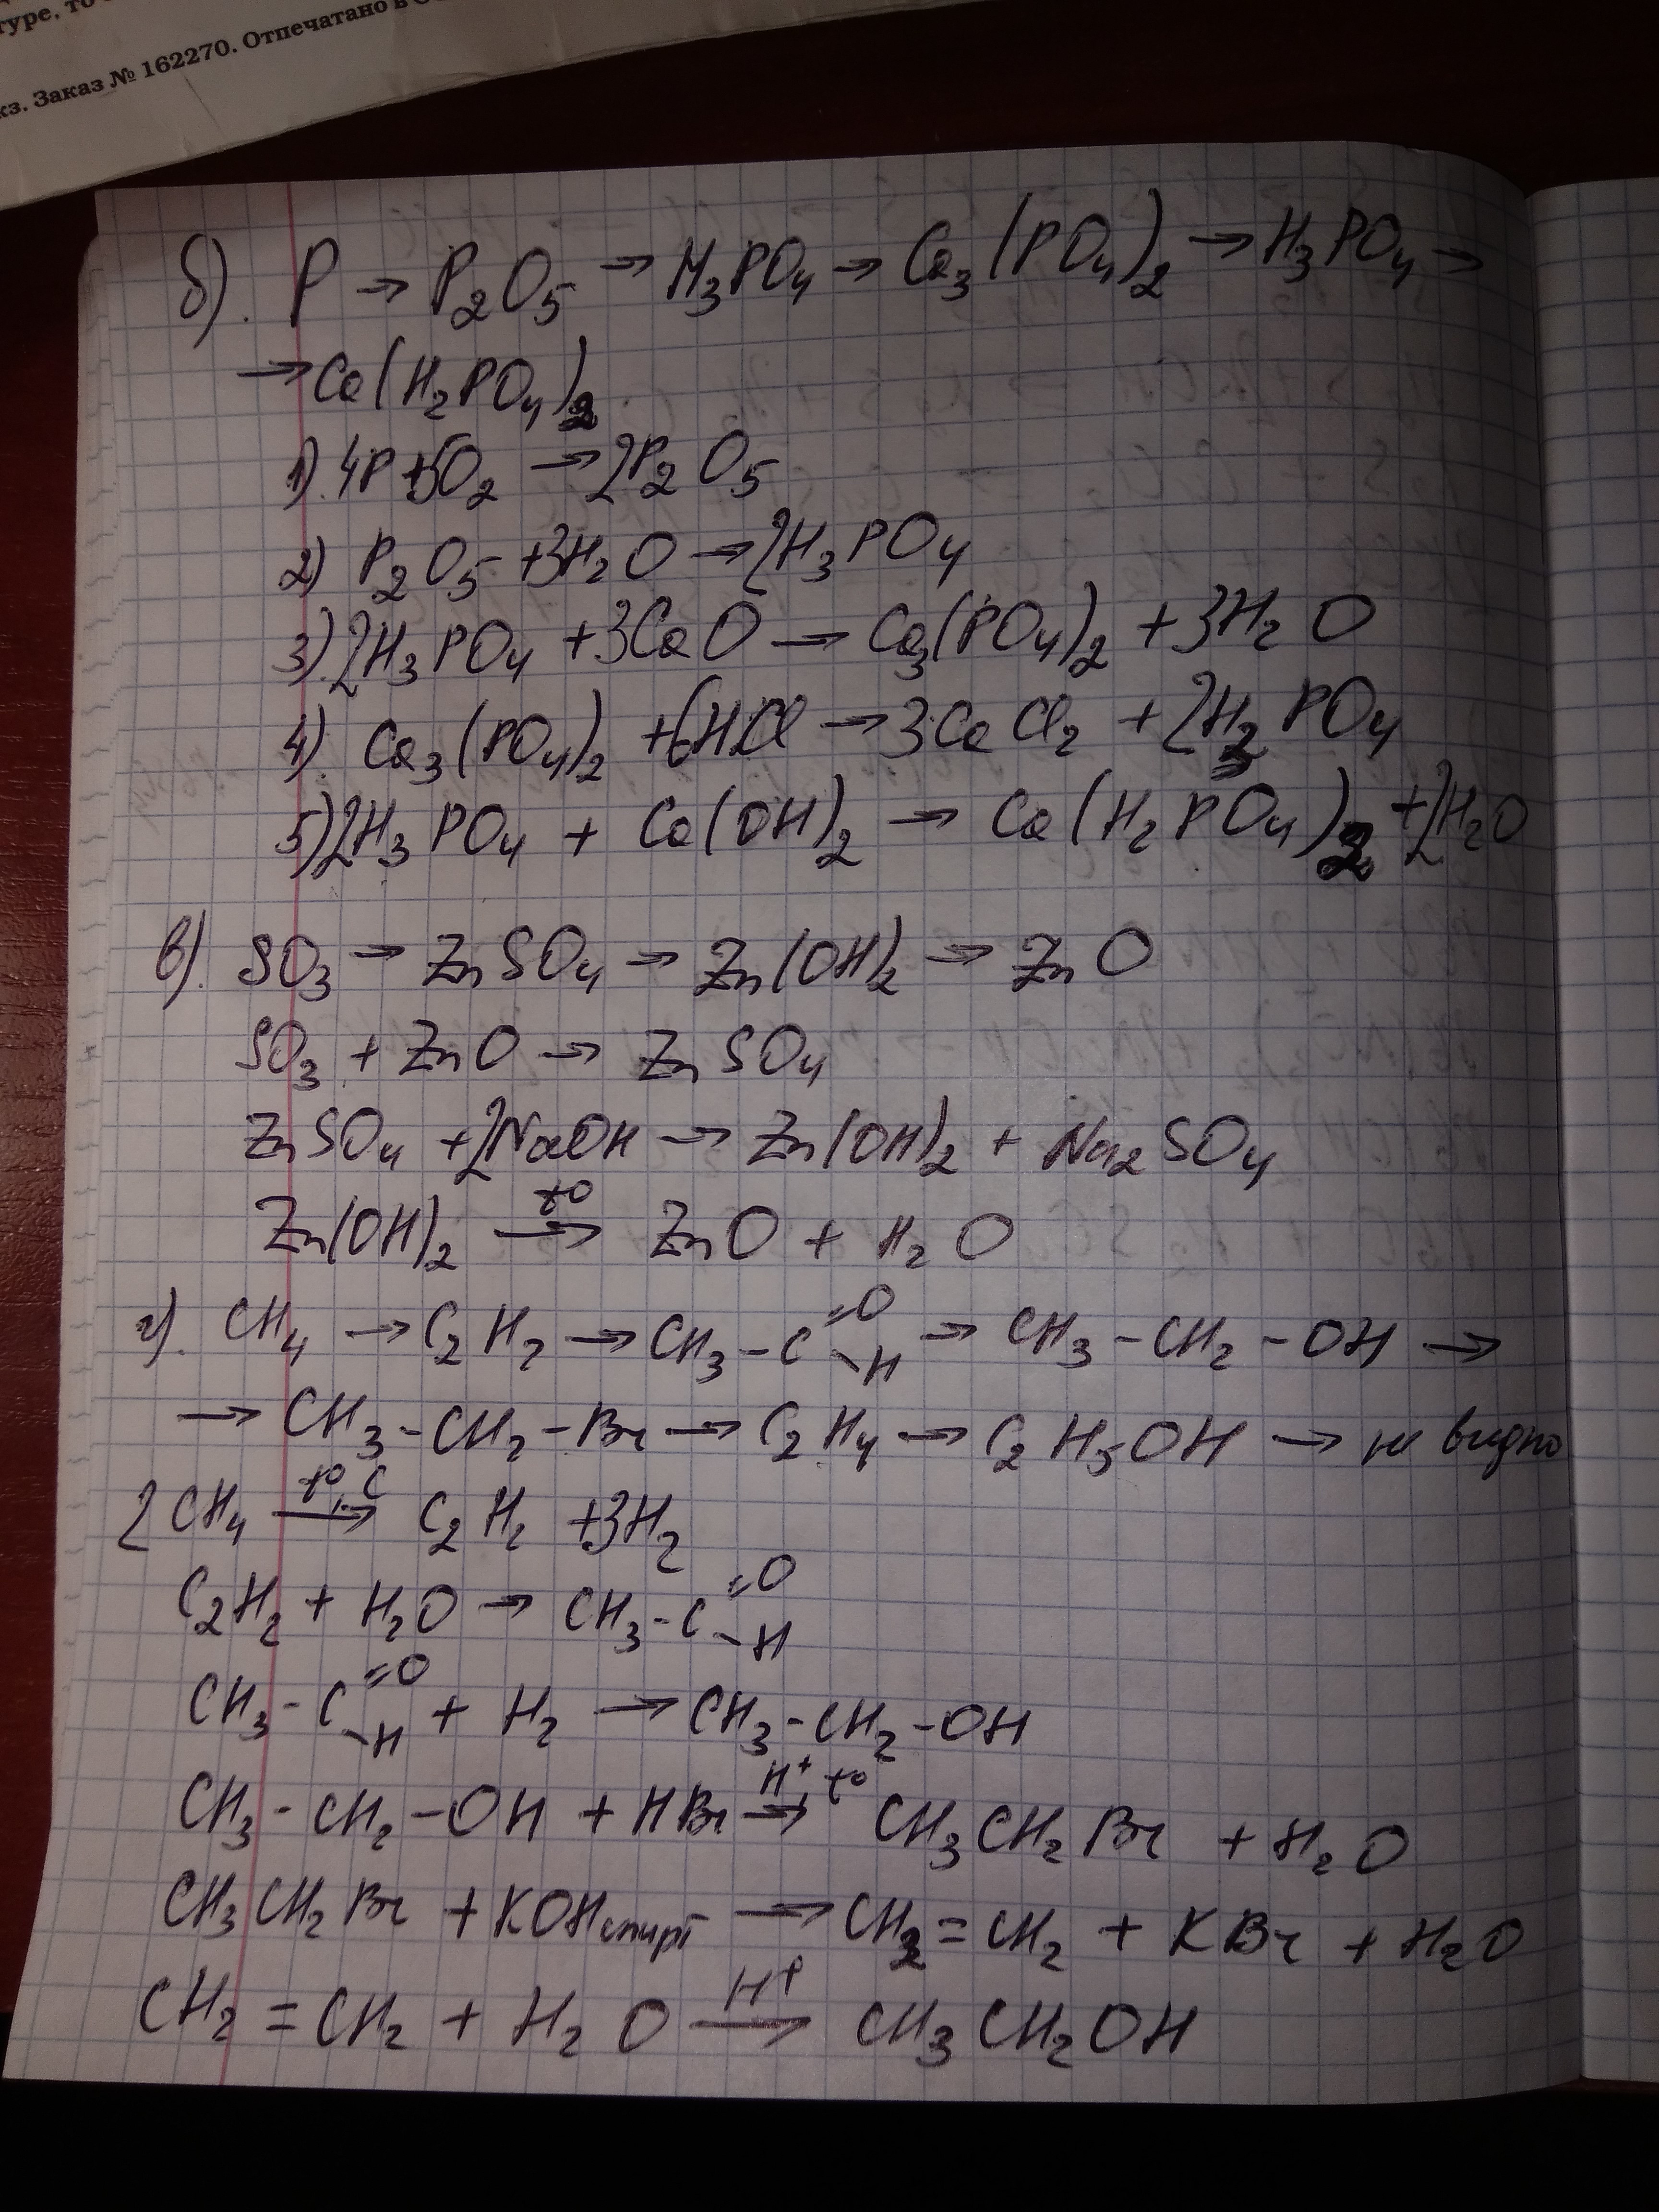 туре, то
кз. Заказ № 162270. Отпечатано в
б). P → P₂O₅ → H₃PO₄ → Ca₃(PO₄)₂ → H₃PO₄ →
→ Ca(H₂PO₄)₂
1). 4P + 5O₂ → 2P₂O₅
2) P₂O₅ + 3H₂O → 2H₃PO₄
3). 2H₃PO₄ + 3CaO → Ca₃(PO₄)₂ + 3H₂O
4) Ca₃(PO₄)₂ + 6HCl → 3CaCl₂ + 2H₃PO₄
5) 2H₃PO₄ + Ca(OH)₂ → Ca(H₂PO₄)₂ + 2H₂O
в). SO₃ → ZnSO₄ → Zn(OH)₂ → ZnO
SO₃ + ZnO → ZnSO₄
ZnSO₄ + 2NaOH → Zn(OH)₂ + Na₂SO₄
Zn(OH)₂ →(t°) ZnO + H₂O
г). CH₄ → C₂H₂ → CH₃-C(=O)-H → CH₃-CH₂-OH →
→ CH₃-CH₂-Br → C₂H₄ → C₂H₅OH → не видно
2CH₄ →(t°, C) C₂H₂ + 3H₂
C₂H₂ + H₂O → CH₃-C(=O)-H
CH₃-C(=O)-H + H₂ → CH₃-CH₂-OH
CH₃-CH₂-OH + HBr →(H⁺, t°) CH₃CH₂Br + H₂O
CH₃CH₂Br + KOH спирт → CH₂=CH₂ + KBr + H₂O
CH₂=CH₂ + H₂O →(H⁺) CH₃CH₂OH